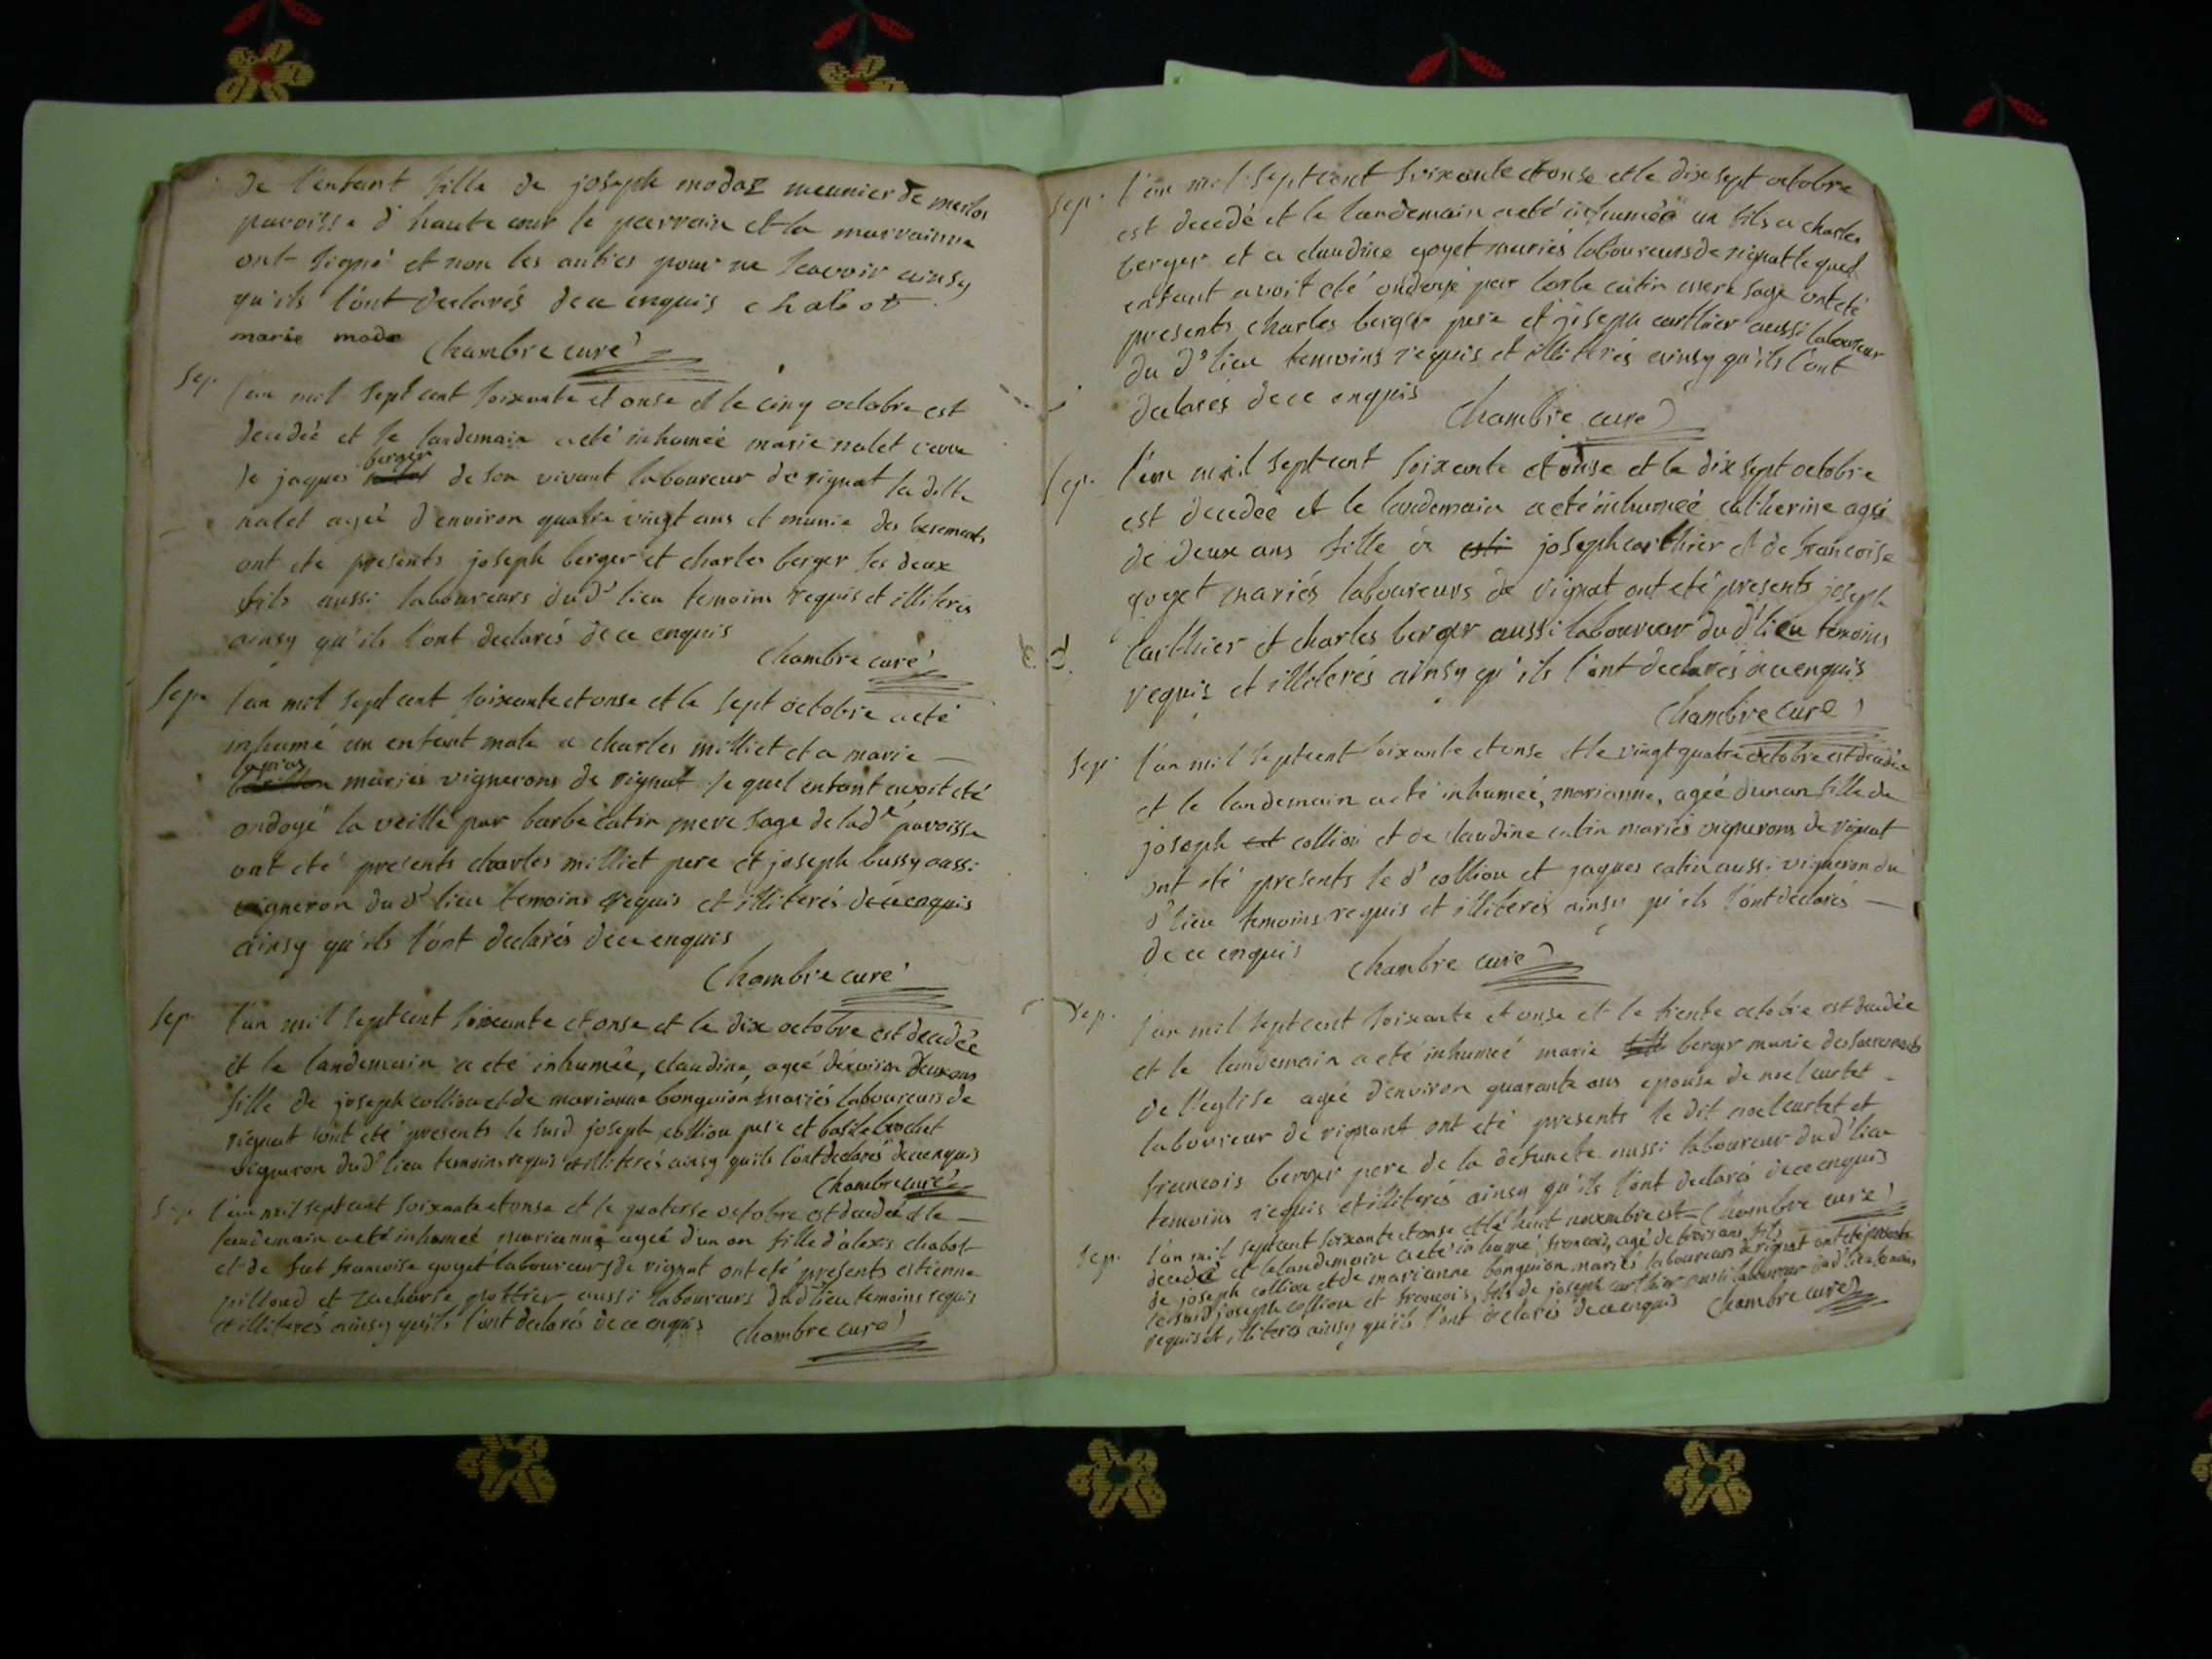 de l'enfant fille de joseph modaz meunier de merlos
paroisse d'haute cour le parrain et la marrainne
ont signé et non les autres pour ne scavoir ainsy
qu'ils l'ont declarés de ce enquis chabot
marie moda Chambre curé
Sep. l'an mil sept cent soixante et onse et le cinq octobre est
decedéé et le landemain a eté inhuméé marie nalet veuve
de jaques berger de son vivant laboureur de rignat la ditte
nalet ageé d'environ quatre vingt ans et munie des
ont ete presents joseph berger et charles berger ses deux
fils aussi laboureurs dud' lieu temoins requis et illiterés
ainsy qu'ils l'ont declarés de ce enquis
Chambre curé
Sep. l'an mil sept cent soixante et onse et le sept octobre a eté
inhumé un enfant male a charles milliet et a marie
mariés vignerons de rignat le quel enfant avoit eté
ondoyé la veille par barbe catin mere sage de lad' paroisse
ont eté presents charles milliet pere et joseph bussy aussi
vigneron dud' lieu temoins requis et illiterés de ce enquis
ainsy qu'ils l'ont declarés de ce enquis
Chambre curé
Sep. l'an mil sept cent soixante et onse et le dix octobre est decedéé
et le landemain a eté inhumée, claudine, ageé d'environ deux ans
fille de joseph colliou et de marianne bonguion mariés laboureurs de
rignat ont eté presents le susd joseph colliou pere et basile brochet
vigneron dud' lieu temoins requis et illiterés ainsy qu'ils l'ont declarés de ce enquis
Chambre curé
Sep. l'an mil sept cent soixante et onse et le quatorse octobre est decedeé et le
landemain a eté inhumeé marianne ageé d'un an fille d'alexis chabot
et de fut francoise goyet laboureurs de rignat ont eté presents estienne
pilloud et zacharie pottier aussi laboureurs dud' lieu temoins requis
et illiterés ainsy qu'ils l'ont declarés de ce enquis Chambre curé
Sep. l'an mil sept cent soixante et onse et le dix sept octobre
est decedé et le landemain a eté inhumé un fils a charles
berger et a claudine goyet mariés laboureurs de rignat le quel
enfant avoit eté ondoyé par barbe catin mere sage ont eté
presents charles berger pere et joseph carthier aussi laboureur
du d' lieu temoins requis et illiterés ainsy qu'ils l'ont
declarés de ce enquis
Chambre curé
Sep. l'an mil sept cent soixante et onse et le dix sept octobre
est decedéé et le landemain a eté inhumeé catherine ageé
de deux ans fille a joseph carthier et de francoise
goyet mariés laboureurs de rignat ont eté presents joseph
carthier et charles berger aussi laboureur du d' lieu temoins
requis et illiterés ainsy qu'ils l'ont declarés de ce enquis
Chambre curé
Sep. l'an mil sept cent soixante et onse et le vingt quatre octobre est decedéé
et le landemain a eté inhumeé, marianne, ageé d'un an fille de
joseph colliou et de claudine catin mariés vignerons de rignat
ont eté presents le d' colliou et jaques catin aussi vigneron du
d' lieu temoins requis et illiterés ainsy qu'ils l'ont declarés
de ce enquis Chambre curé
Sep. l'an mil sept cent soixante et onse et le trente octobre est decedéé
et le landemain a eté inhumeé marie berger munie des sacrements
de l'eglise ageé d'environ quarante ans epouse de noel curtet
laboureur de rignant ont eté presents le dit noel curtet et
francois berger pere de la defuncte aussi laboureur dud' lieu
temoins requis et illiterés ainsy qu'ils l'ont declarés de ce enquis
Chambre curé
Sep. l'an mil sept cent soixante et onse et le huit novembre est
decedé et le landemain a eté inhumé, francois, agé de trois ans, fils
de joseph colliou et de marianne bonguion mariés laboureurs de rignat ont eté presents
le susd joseph colliou et francois, fils de joseph carthier aussi laboureur dud' lieu temoins
requis et illiterés ainsy qu'ils l'ont declarés de ce enquis Chambre curé